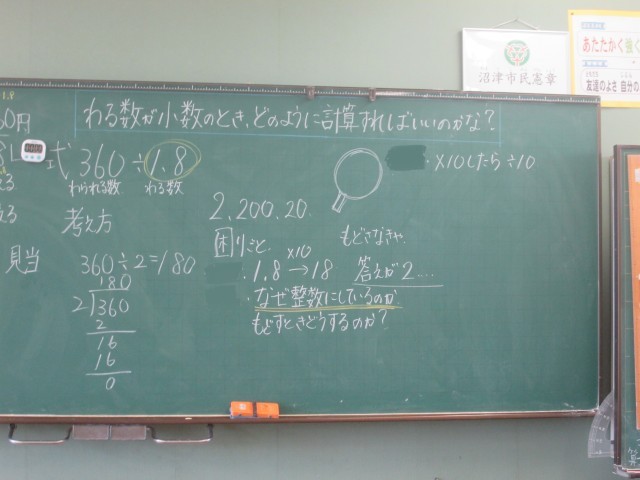 わる数が小数のとき、どのように計算すればいいのかな?
0円
式 360÷1.8
わられる数 わる数
×10したら÷10
考え方
2,200.20.
見当 360÷2=180
困りごと
もどさなきゃ
×10
・1.8→18 答えが2....
・なぜ整数にしているのか
もどすときどうするのか?
180
2)360
2
16
16
0
沼津市民憲章
あたたかく強く
友達のよさ 自分の